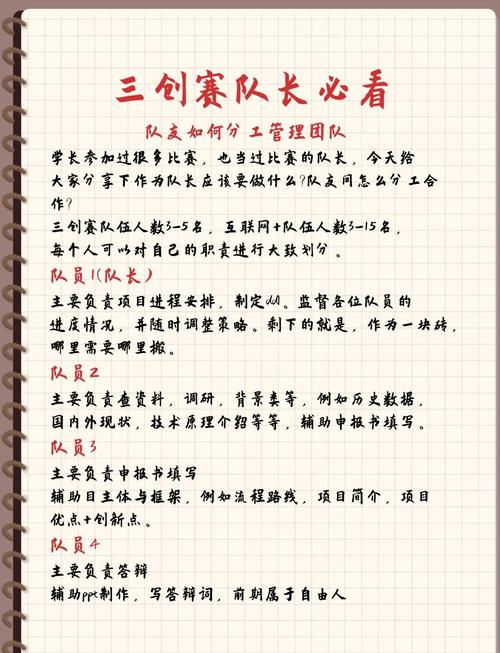 三创赛队长必看
队友如何分工管理团队
学长参加过很多比赛，也当过比赛的队长，今天给
大家分享下作为队长应该要做什么?队友间怎么分工合
作?
三创赛队伍人数3-5名，互联网+队伍人数3-15名，
每个人可以对自己的职责进行大致划分。
队员1(队长)
主要负责项目进程安排，制定ddl。监督各位队员的
进度情况，并随时调整策略。剩下的就是，作为一块砖，
哪里需要哪里搬。
队员2
主要负责查资料，调研，背景类等，例如历史数据，
国内外现状，技术原理介绍等等，辅助申报书填写。
队员3
主要负责申报书填写
辅助目主体与框架，例如流程路线，项目简介，项目
优点+创新点。
队员4
主要负责答辩
辅助ppt制作，写答辩词，前期属于自由人